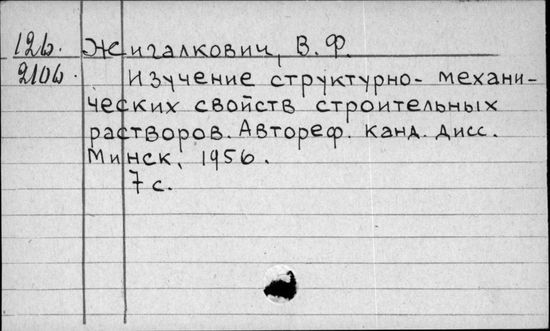 12б. Жигалкович, В. Ф.
210б. Изучение структурно- механи-
ческих свойств строительных
растворов. Автореф. канд. дисс.
Минск, 1956.
7 с.